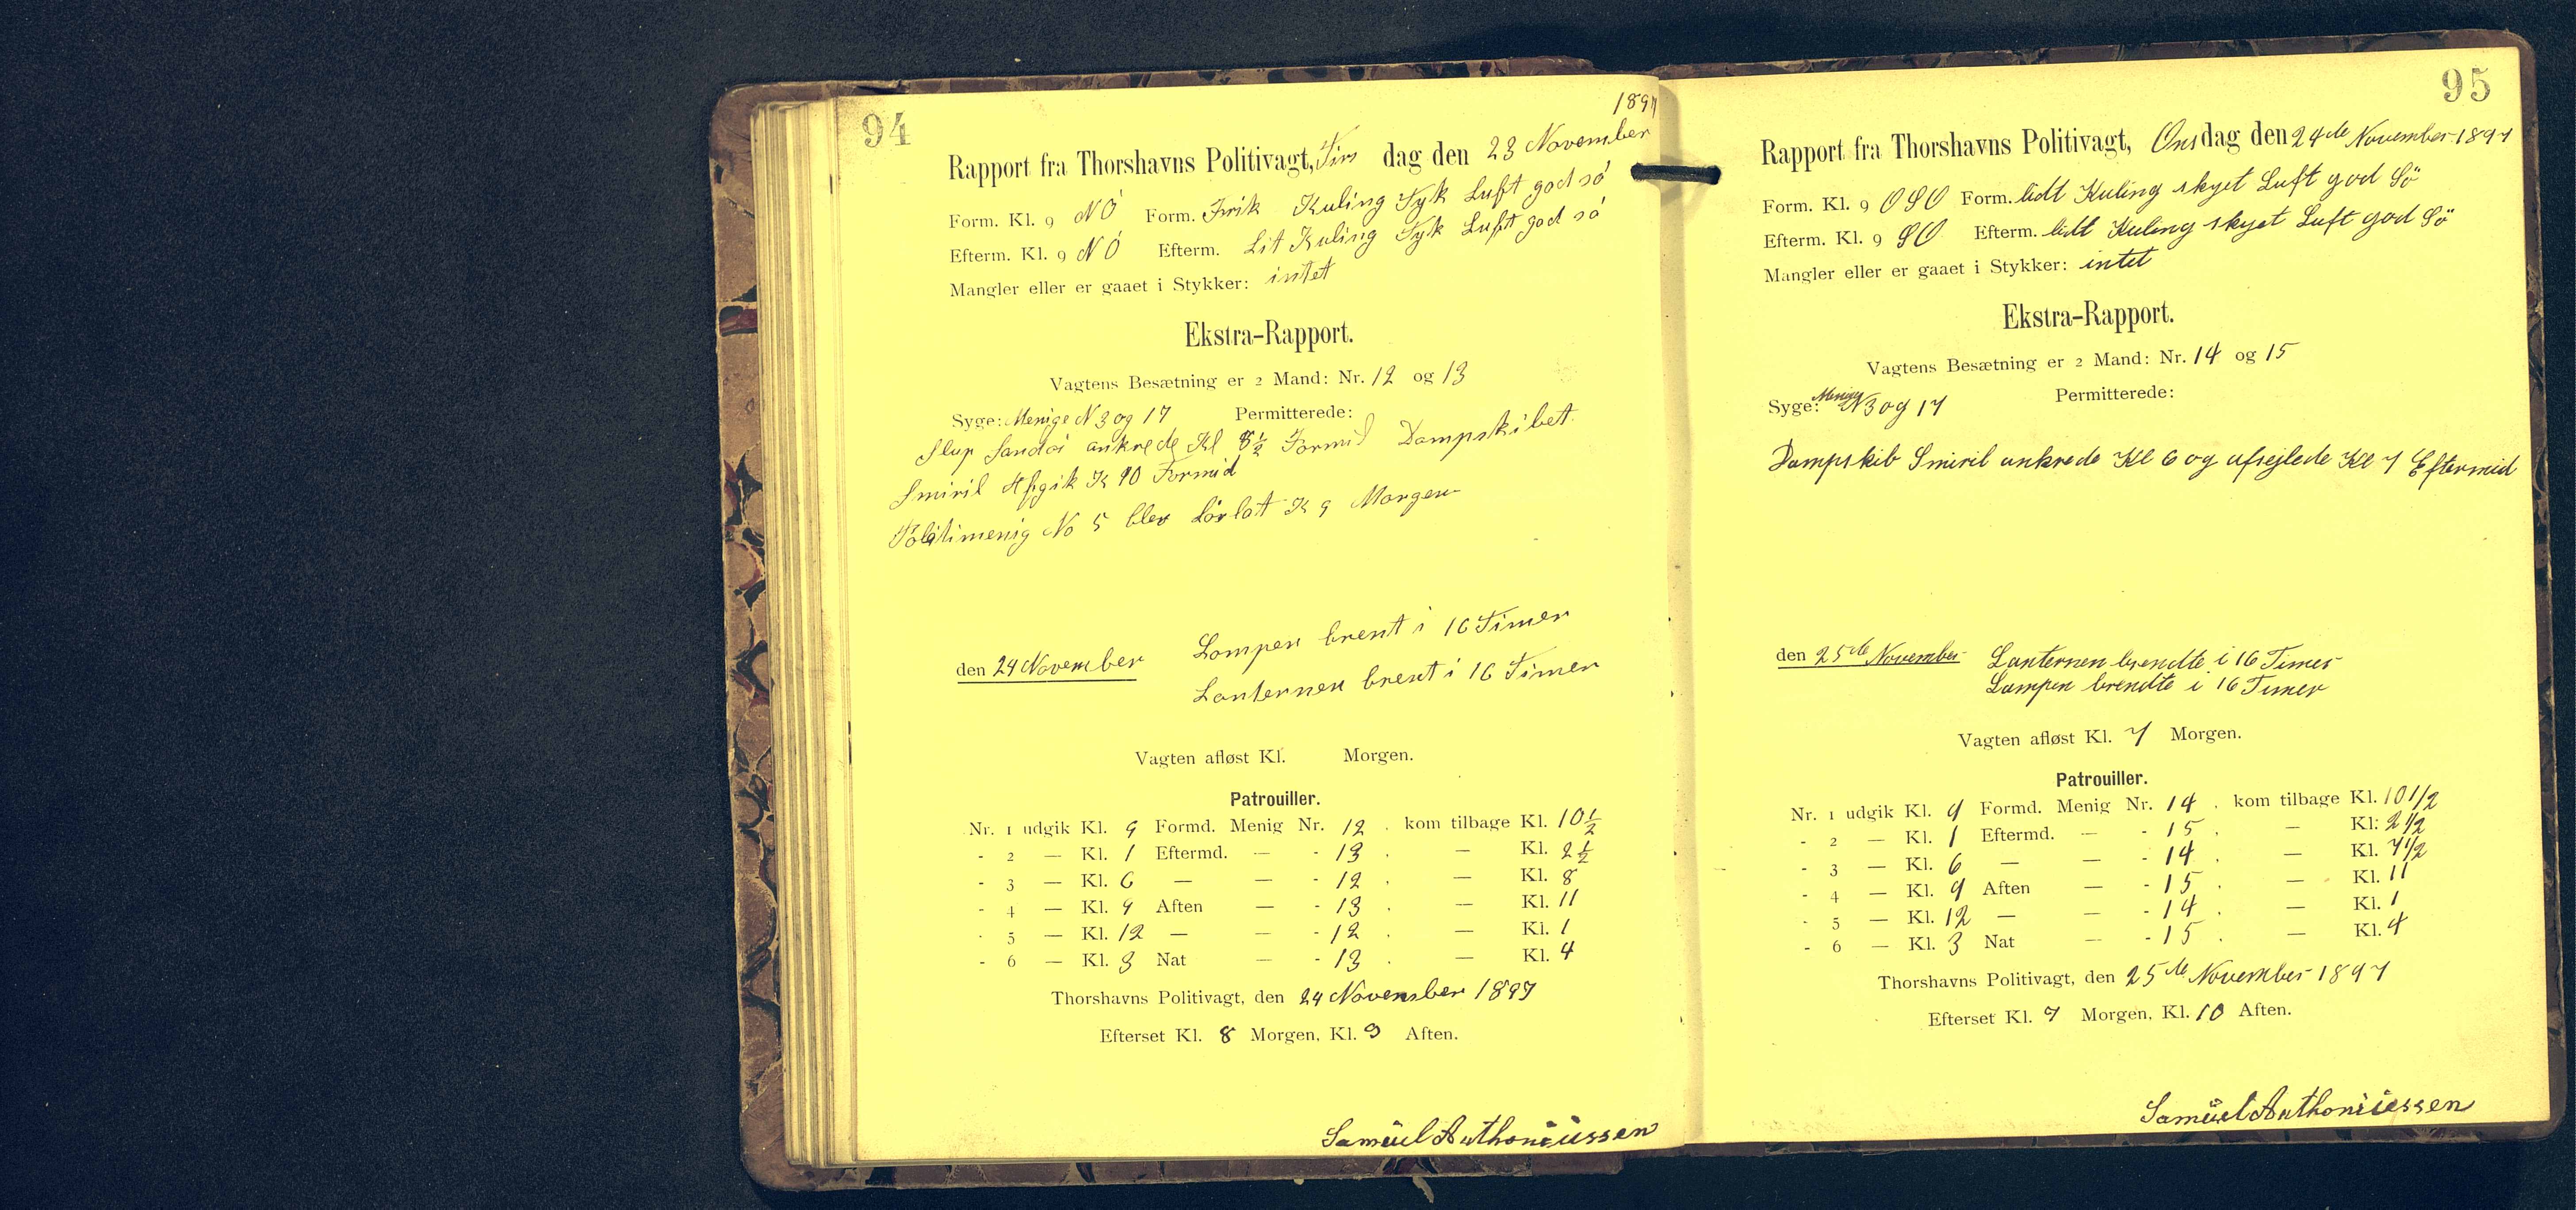 94
1897
Rapport fra Thorshavns Politivagt, Tirs dag den 23 November
Form. Kl. 9 NÓ Form. Frisk Kuling Tyk Luft god só
Efterm. Kl. 9 NÓ Efterm. Lit Kuling Tyk Luft god só
Mangler eller er gaaet i Stykker: intet
Ekstra-Rapport.
Vagtens Besætning er 2 Mand: Nr. 12 og 13
Syge: Menige N 3 og 17 Permitterede:
Slup Sandoi ankrede Kl 8½ Formid Dampskibet
Smiril Afgik K 10 Formid
Politimenig No 5 blev Lörlat K 9 Morgen
den 24 November Lampen brent i 16 Timer
Lanternen brent i 16 Timer
Vagten afløst Kl. Morgen.
Patrouiller.
Nr. 1 udgik Kl. 9 Formd. Menig Nr. 12 . kom tilbage Kl. 10½
- 2 — Kl. 1 Eftermd. — - 13 . — Kl. 2½
- 3 — Kl. 6 — — - 12 . — Kl. 8
- 4 — Kl. 9 Aften — - 13 . — Kl. 11
- 5 — Kl. 12 — — - 12 . — Kl. 1
- 6 — Kl. 3 Nat — - 13 . — Kl. 4
Thorshavns Politivagt, den 24 November 1897
Efterset Kl. 8 Morgen, Kl. 9 Aften.
Samúel Anthoniussen
95
Rapport fra Thorshavns Politivagt, Ons dag den 24de November 1897
Form. Kl. 9 OSO Form. lidt Kuling skyet Luft god Sö
Efterm. Kl. 9 SO Efterm. lidt Kuling skyet Luft god Sö
Mangler eller er gaaet i Stykker: intet
Ekstra-Rapport.
Vagtens Besætning er 2 Mand: Nr. 14 og 15
Syge: Menig N 3 og 17 Permitterede:
Dampskib Smiril ankrede Kl 6 og afsejlede Kl 7 Eftermid
den 25de November Lanternen brendte i 16 Timer
Lampen brendte i 16 Timer
Vagten afløst Kl. 7 Morgen.
Patrouiller.
Nr. 1 udgik Kl. 9 Formd. Menig Nr. 14 . kom tilbage Kl. 10 1/2
- 2 — Kl. 1 Eftermd. — - 15 . — Kl: 2 1/2
- 3 — Kl. 6 — — - 14 . — Kl. 7 1/2
- 4 — Kl. 9 Aften — - 15 . — Kl. 11
- 5 — Kl. 12 — — - 14 . — Kl. 1
- 6 — Kl. 3 Nat — - 15 . — Kl. 4
Thorshavns Politivagt, den 25de November 1897
Efterset Kl. 7 Morgen, Kl. 10 Aften.
Samúel Anthoniussen